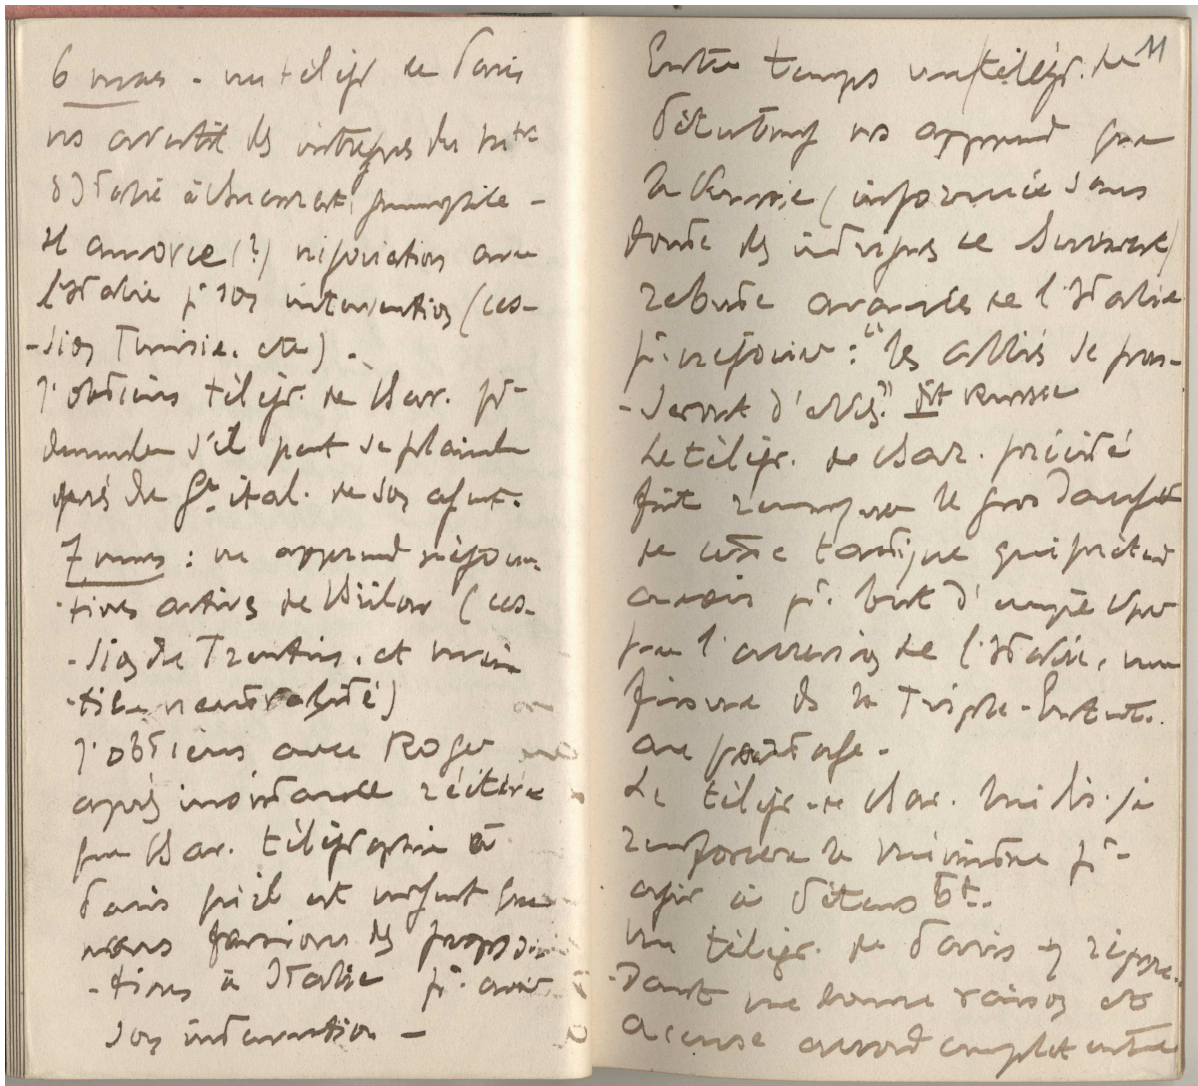 6 mars - un télégr de Paris
ns avertit des intrigues du Mtre
d'Italie à Bucarest,
Il amorce (?) négociation avec
l'Italie pr son intervention (ces-
-sion Tunisie. etc) -
J'obtiens télégr. de Bar. pr
demander s'il peut se plaindre
après de Gt ital. de son agent.
7 mars : on apprend négocia-
-tions actives de Bülow (ces-
-sion du Trentin. et
neutralité)
J'obtiens avec Roger
après insistance réitérée
que Bar. télégraphie à
Paris qu'il est urgent que
nous fassions des proposi-
-tions à Italie pr. avoir
son intervention -
11
Entre temps un télégr. de
Pétersbourg ns apprend que
la Russie (informée sans
doute des intrigues de Bucarest)
rebute avances de l'Italie
pr. négocier : "les alliés se pas-
-seront d'elle." dit Russie
Le télégr. de Bar. précité
fait remarquer le gros danger
de cette tactique qui prétend
avoir pr. but d'empêcher
par l'accession de l'Italie, une
fissure de la Triple-Entente.
au partage -
Le télégr. de Bar. lui dis-je
renforcera le ministre pr
agir à Pétersbt.
Un télégr. de Paris y répon-
-dant ne donne raison et
accuse accord complet entre